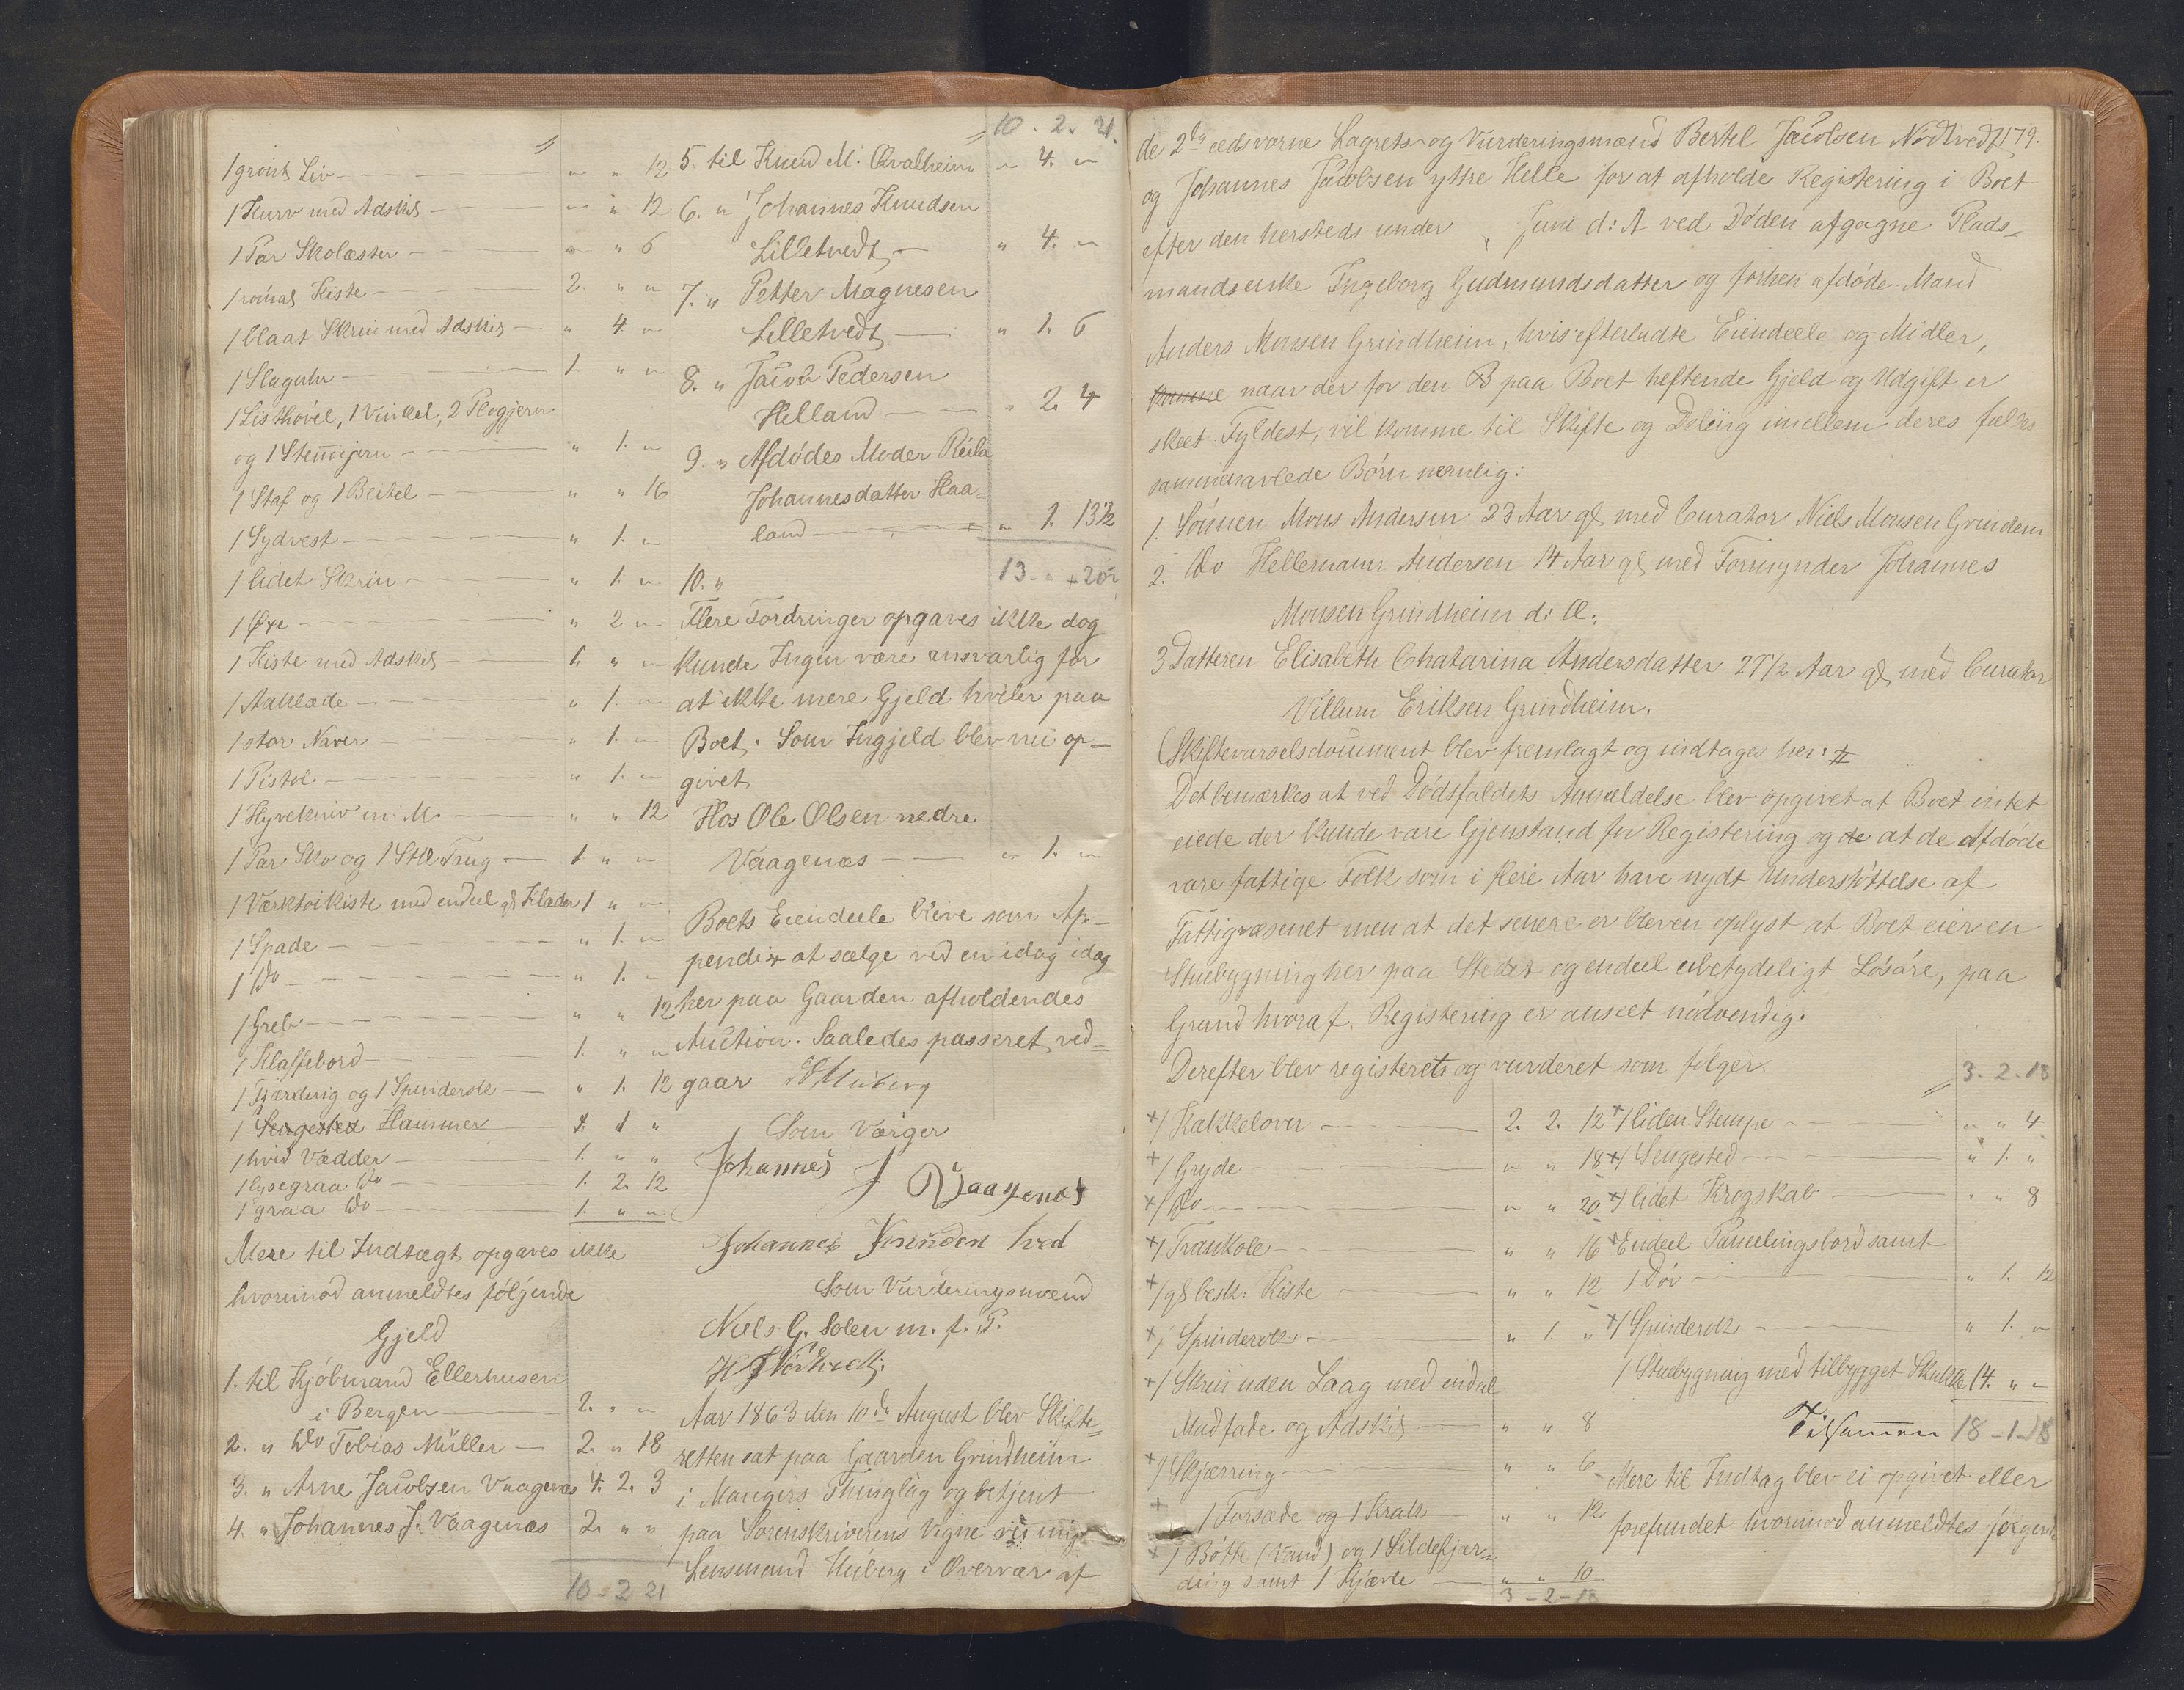 1 grønt Liv - - - " " 12
1 Kurv med Adskil - " " 12
1 Par Skolæster - " " 6
1 Kiste - 2. " "
1 blaat Skrin med Adskil - " 4 "
1 Slaguhr - 1. " "
1 Listhøvel, 1 Vinkel, 2 Plogjern
og 1 Stemjern - " 1. "
1 Staf og 1 Beitel - " " 16
1 Sydvest - " 1. "
1 lidet Skrin - " 1. "
1 Øxe - " 2 "
1 Kiste med Adskil - 1. " "
1 Aaklæde - " 1. "
1 stor Naver - " 1. "
1 Pistol - " 1. "
1 Hyvekniv m: M. - " " 12
1 Par Sko og 1 Stk Taug - 1. " "
1 Værktøikiste med endeel gl Klæder 1 " "
1 Spade - " 1. "
1 Do - " 1. "
1 Greb - " " 12
1 Klaffebord - 1. " "
1 Fjærding og 1 Spinderok - " 1. 12
1 Sengested Hammer - 1 "
1 hvid Vædder - 1. " "
1 lysegraa Do - 1. 2. 12
1 graa Do - 1. " "
Mere til Indtægt opgaves ikke
hvorimod anmeldtes følgende
Gjeld
1. til Kjøbmand Ellerhusen
i Bergen - 2. " "
2. " Do Tobias Müller - 2. " 18
3. " Arne Jacobsen Vaagenæs 4. 2. 3
4. " Johannes J. Vaagenæs 2. " "
10 - 2 21
10. 2. 21.
5. til Knud M. Qvalheim " 4. "
6. " Johannes Knudsen
Lilletvedt - " 4. "
7. " Petter Magnesen
Lilletvedt - " 1. 6
8. " Jacob Pedersen
Helland - " 2. 4
9. " Afdødes Moder
Johannesdatter Haa=
land - " 1. 13½
13 - " +20½
10. "
Flere Fordringer opgaves ikke dog
kunde Ingen være ansvarlig for
at ikke mere Gjeld hviler paa
Boet. Som Indgjeld blev nu op-
givet
Hos Ole Olsen nedre
Vaagenæs - " 1. "
Boets Eiendeele blive som Ap-
pendix at sælge ved en idag idag
her paa Gaarden afholdendes
Auction. Saaledes passeret ved=
gaar
Som Værger
Johannes J Vaagenes
Johannes
Som Vurderingsmænd
Niels G. Solen m. f. P.
Aar 1863 den 10de August blev Skifte=
retten sat paa Gaarden Grindheim
i Mangers Thinglag og betjent
paa Sorenskriverens Vegne mig
Lensmand i Overvær af
179.
de 2de eedsvorne Lagrets- og Vurderingsmænd Bertel Jacobsen Nødtvedt
og Johannes Jacobsen yttre Helle for at afholde Registering i Boet
efter den hersteds under Juni d: A ved Døden afgagne Plads-
mandsenke Ingeborg Gudmundsdatter og forhen afdøde Mand
Anders Monsen Grindheim, hvis efterladte Eiendeele og Midler,
naar der for den paa Boet heftende Gjeld og Udgift er
skeet Fyldest, vil komme til Skifte og Deling imellem deres fælles
sammenavlede Børn nemlig:
1. Sønnen Mons Andersen 23 Aar gl med Curator Niels Monsen Grindem
2. Do Hellemann Andersen 14 Aar gl med Formynder Johannes
Monsen Grindheim d: Æ.
3 Datteren Elisabeth Chatarina Andersdatter 27½ Aar gl med Curator
Villum Eriksen Grindheim.
Skiftevarselsdocument blev fremlagt og indtages her: #
Det bemærkes at ved Dødsfaldets Anmeldelse blev opgivet at Boet intet
eiede der kunde være Gjenstand for Registering og de at de afdøde
vare fattige Folk som i flere Aar have nydt Understøttelse af
Fattigvæsenet men at det senere er bleven oplyst at Boet eier en
Stuebygning her paa Stedet og endeel ubetydeligt Løsøre, paa
Grund hvoraf Registering er anseet nødvendig.
Derefter blev registeret og vurderet som følger.
+1 Kakkelovn - 2. 2. 12
+1 Gryde - " " 18
+1 Do - " " 20
+1 Trankole - " " 16
+1 gl besk: Kiste - " " 12
+1 Spinderok - " 1. "
+1 Skrin uden Laag med endeel
Madfade og Adskil - " " 8
+1 Skjærring - " " 6
+ 1 Forsæde og 1 Krak - " " 12
+ 1 Bøtte (Vand) og 1 Sildefjær=
ding samt 1 Kjævle - " " 10
3 - 2 - 18
3. 2. 18
+1 liden Stampe - " " 4
+1 Sengested - " 1. "
+1 lidet Krogskab - " " 8
+Endeel Pannelingsbord samt
1 Dør - " 1. 12
+1 Spinderok - " 1. "
1 Stuebygning med tilbygget Skukke 14. " "
Tilsammen 18 - 1 - 18
Mere til Indtag blev ei opgivet eller
forefundet hvorimod anmeldtes følgende